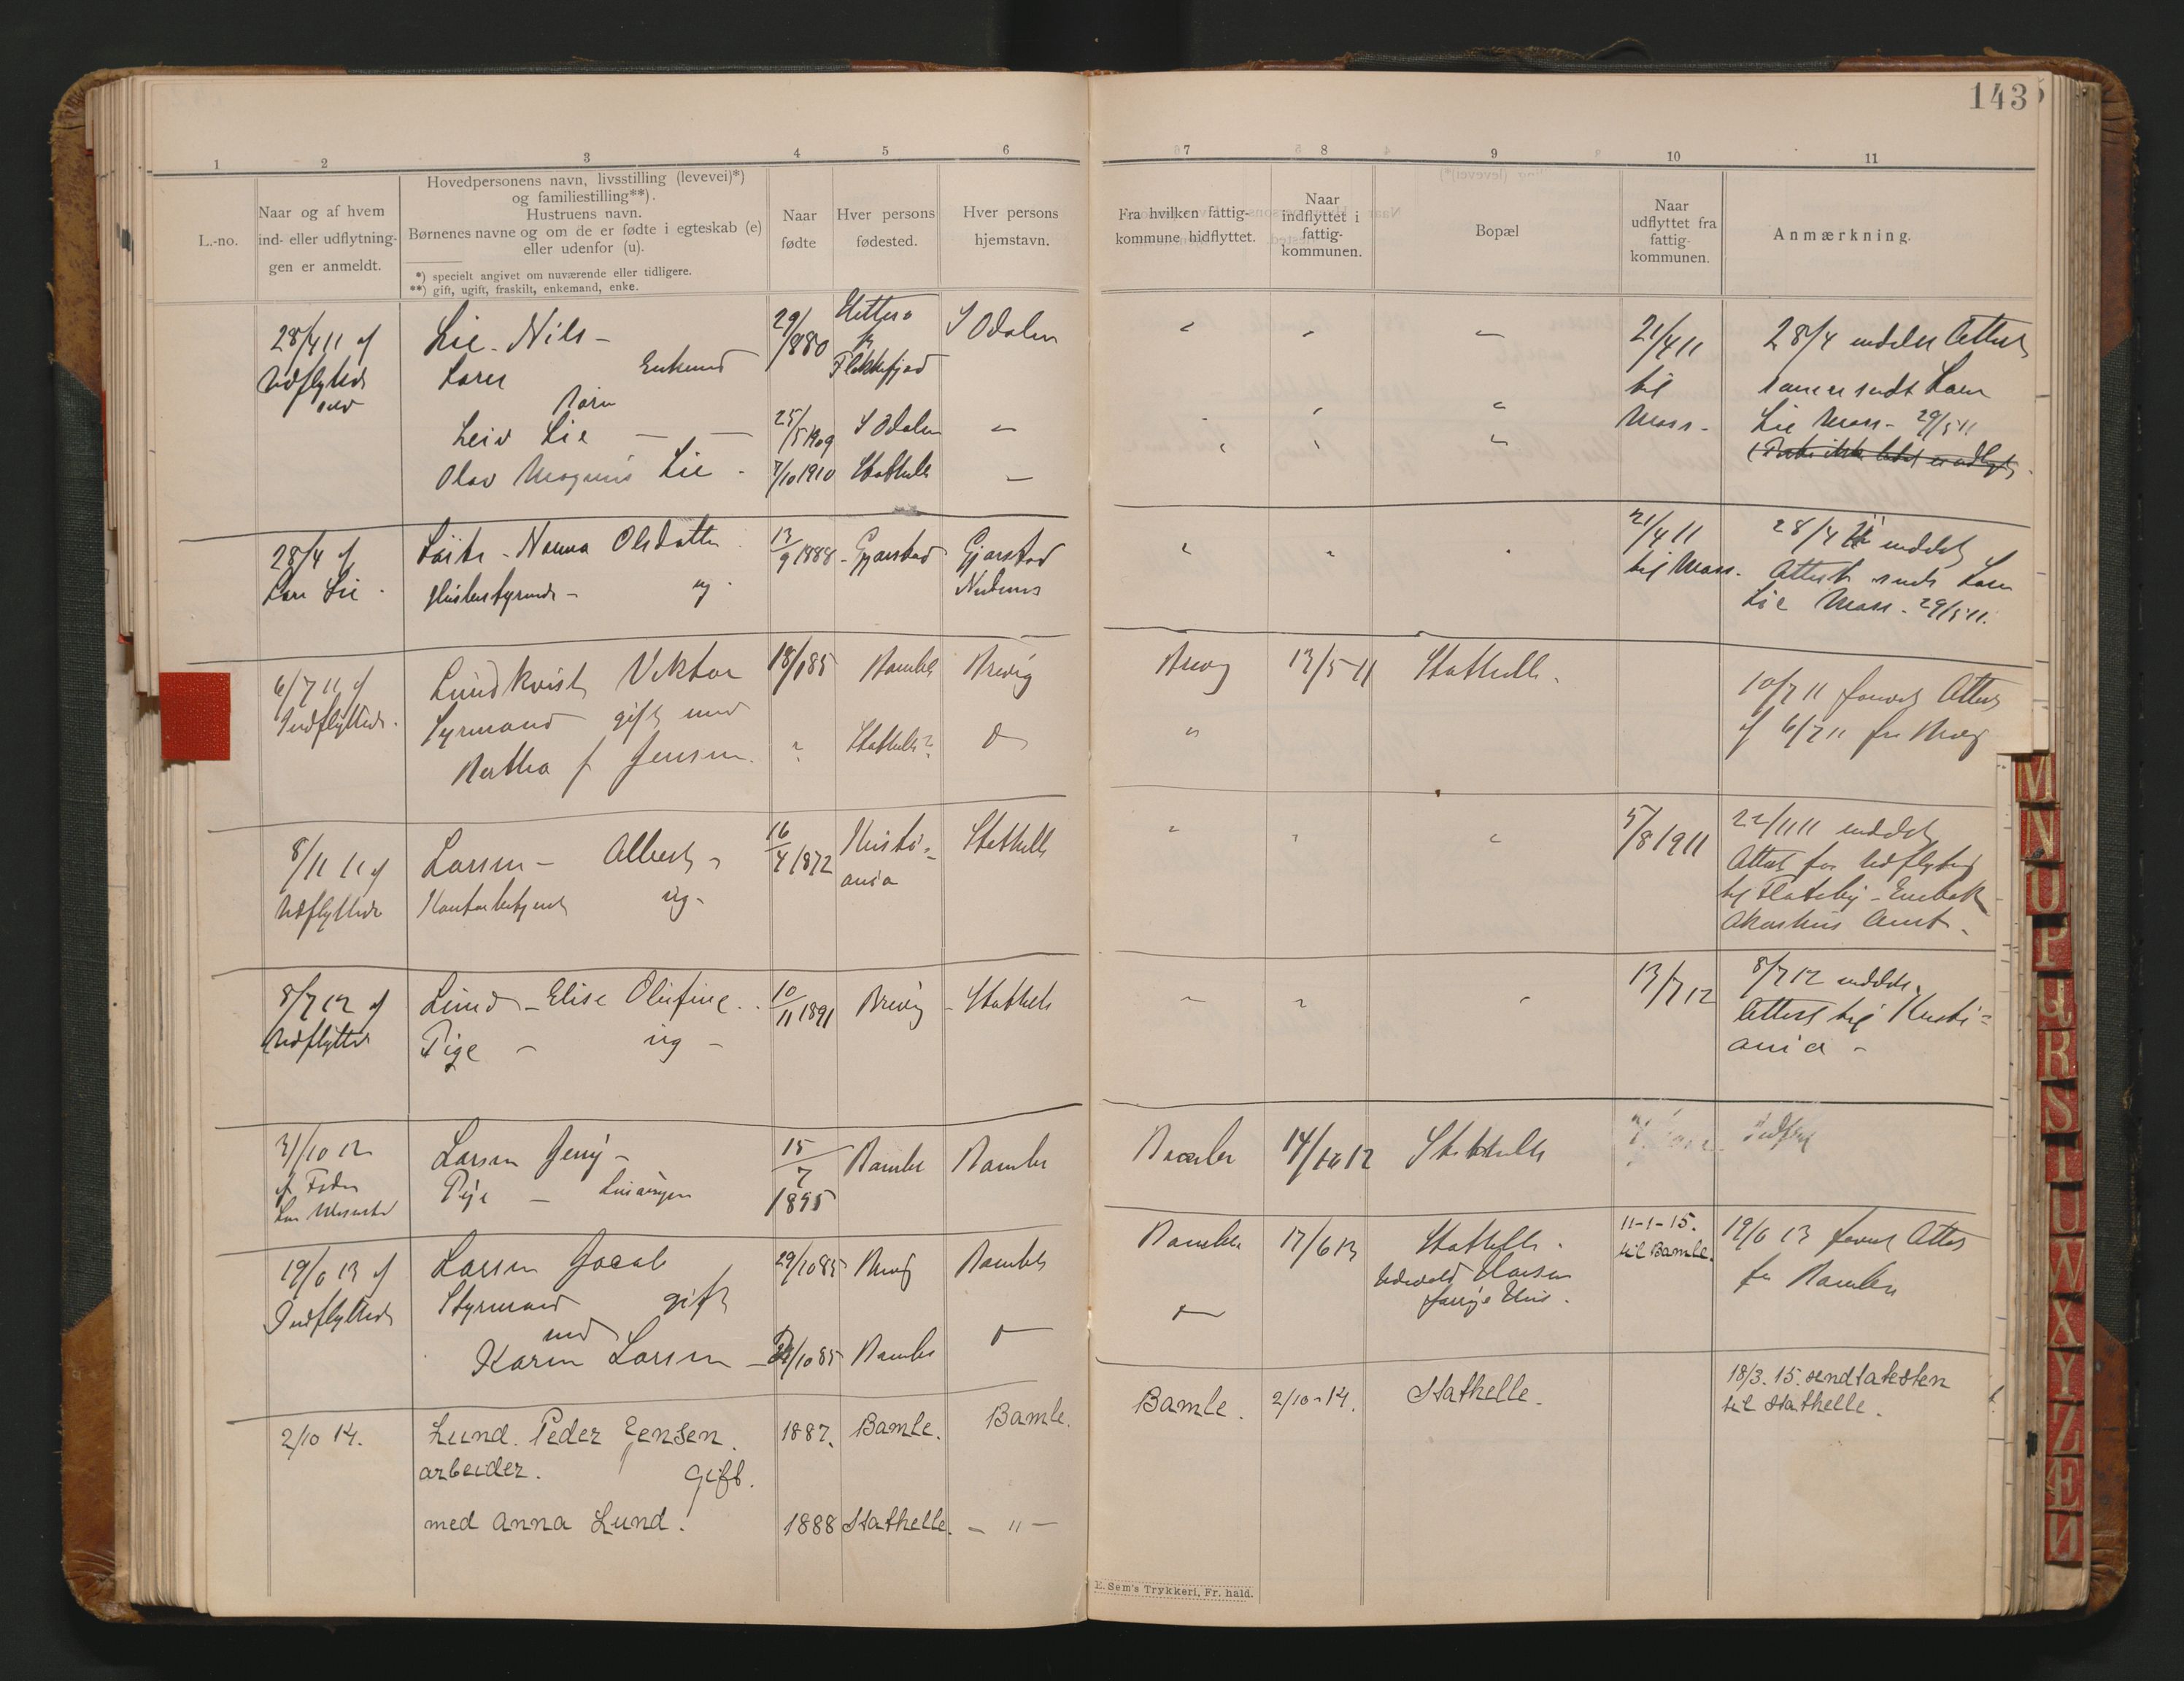 143
1 2 3 4 5 6 7 8 9 10 11
L.-no.
Naar og af hvem
ind- eller udflytnin-
gen er anmeldt.
Hovedpersonens navn, livsstilling (levevei)*)
og familiestilling**).
Hustruens navn.
Børnenes navne og om de er fødte i egteskab (e)
eller udenfor (u).
*) specielt angivet om nuværende eller tidligere.
**) gift, ugift, fraskilt, enkemand, enke.
Naar
fødte
Hver persons
fødested.
Hver persons
hjemstavn.
Fra hvilken fattig-
kommune hidflyttet.
Naar
indflyttet i
fattig-
kommunen.
Bopæl
Naar
udflyttet fra
fattig-
kommunen.
Anmærkning.
28/4 11 af
Udflytted
Lie - Nils -
Lars Enkemd
Barn
Leiv Lie — —
Olav Magnus Lie -
29/
/880
25/
/5 1909
7/10 1910
Hitterø
Flekkefjord
S Odalen
Stathelle
S Odalen
21/4 11
til
Moss -
28/4 meddelt Attest
som er sendt Lars
Lie Moss - 29/5 11
28/4 af
Lars Lie -
Olsdatter
Husbestyrerinde - ug -
13/9 1888
Gjerstad
Gjerstad
Nedenes
21/4 11
til Moss.
28/4 11 meddelt
Attest sendt Lars
Lie Moss - 29/5 11.
6/7 11 af
Indflyttede.
Lundkvist Viktor
Styrmand gift med
Bertha f Jensen.
18/1 85
Bamble
Stathelle?
Brevig
Brevig
13/5 11
Stathelle.
10/7 11 Attest
af 6/7 11 fra Brevig
8/11 11 af
Udflyttede
Larsen - Albert -
Kontorbetjent ug -
16/4 1872
Kristi-
ania
Stathelle
5/8 1911
22/11 11 meddelt
Attest for Udflytted
til Flateby - Enebak
Akershus Amt -
8/7 12 af
Udflytted
Lund - Elise Olufine -
Pige - ug -
10/11 1891
Brevig
Stathelle
13/7 12
8/7 12 meddelt
Attest til Kristi=
ania -
31/10 12
af Fader
Larsen Jenny -
Pige -
15
7
1895
Bamble
Bamble
Bamble
14/10 12
Stathelle
19/6 13 af
Indflyttede
Larsen Jacob
Styrmand gift
med
Karen Larsen
29/10 85
Brevig
Bamble
/10 85
Bamble
Bamble
17/6 13
Stathelle -
Hansen
Hus.
11-1-15.
til Bamle.
19/6 13 Attest
fra Bamble
2/10 14.
Lund. Peder Jensen.
arbeider. Gift.
med Anna Lund.
1887.
1888
Bamle.
Stathelle.
Bamle.
— " —
Bamle.
2/10-14.
Stathelle.
18/3. 15. sendt atesten
til Stathelle.
E. Sem's Trykkeri, Fr. hald.
M
N
O
P
Q
R
S
T
U
W
X
Y
Z
Æ
Ø